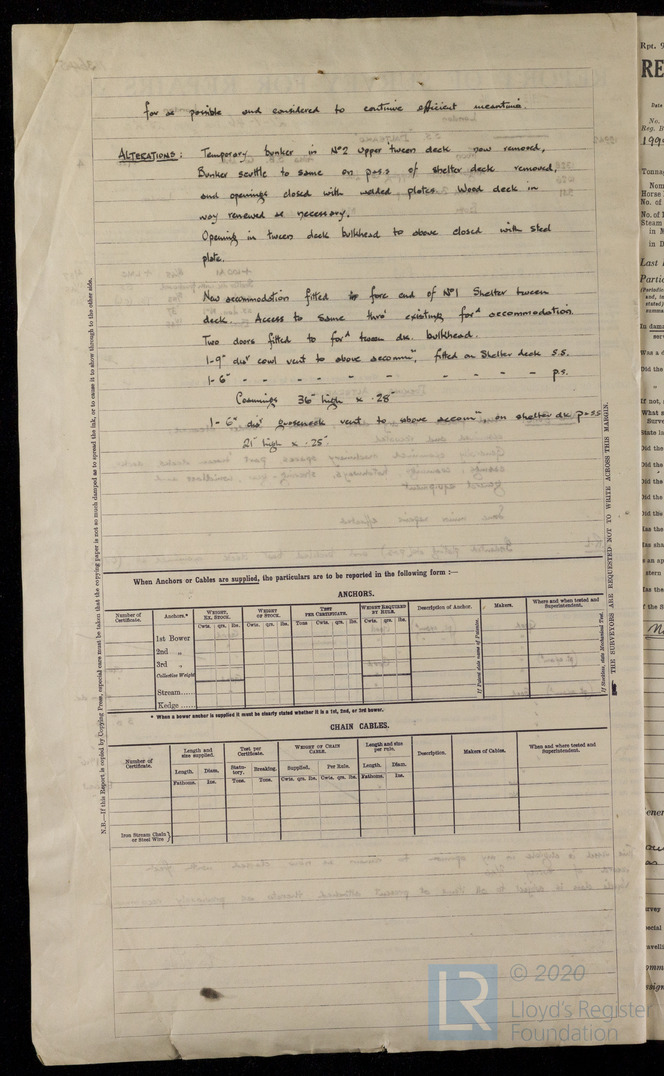 for as possible and considered to continue efficient meantime
ALTERATIONS: Temporary bunker in No2 upper 'tween deck now removed,
Bunker scuttle to same on p & s of shelter deck removed,
and openings closed with welded plates. Wood deck in
way renewed as necessary.
Opening in tween deck bulkhead to above closed with steel
plate.
New accommodation fitted fore end of No1 Shelter tween
deck. Access to same thro' existing for'd accommodation.
Two doors fitted to for'd tween dk. bulkhead.
1-9" dia' cowl vent to above accomm", fitted on Shelter deck s.s.
1-6" - - - - - - - - - p.s.
Coamings 36" high x .28"
1-6" dia' gooseneck vent to above accomn, on shelter dk p & s
21" high x .25".
When Anchors or Cables are supplied, the particulars are to be reported in the following form :—
ANCHORS.
Number of Certificate. Anchors.* WEIGHT, EX. STOCK. WEIGHT OF STOCK. TEST PER CERTIFICATE. WEIGHT REQUIRED BY RULE. Description of Anchor. Makers. Where and when tested and Superintendent.
Cwts. qrs. lbs. Cwts. qrs. lbs. Tons Cwts. qrs. lbs. Cwts. qrs. lbs.
1st Bower
2nd „
3rd „
Collective Weight
Stream
Kedge
If Patent state name of Patentee.
If Stockless, state Mechanical Test.
* When a bower anchor is supplied it must be clearly stated whether it is a 1st, 2nd, or 3rd bower.
CHAIN CABLES.
Number of Certificate. Length and size supplied. Test per Certificate. WEIGHT OF CHAIN CABLE. Length and size per rule. Description. Makers of Cables. When and where tested and Superintendent.
Length. Diam. Statutory. Breaking. Supplied. Per Rule. Length. Diam.
Fathoms. Ins. Tons. Tons. Cwts. qrs. lbs. Cwts. qrs. lbs. Fathoms. Ins.
Iron Stream Chain or Steel Wire
N.B.—If this Report is copied by Copying Press, especial care must be taken that the copying paper is not so much damped as to spread the ink, or to cause it to show through to the other side.
THE SURVEYORS ARE REQUESTED NOT TO WRITE ACROSS THIS MARGIN.
Rpt. 9
RE
Date
No.
Reg. B
Nom
Horse
No. of
No. of
Steam
in
in D
Last
Partic
In dam
Was a d
Did the
If not,
What s
Surve
State la
Did the
Did the
Did the
Did the
Did this
Has the
Has sha
stern
Has the
If the B
LR © 2020
Lloyd's Register
Foundation